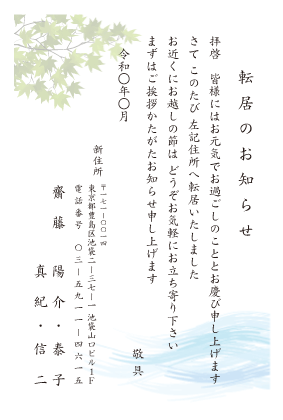 転居のお知らせ
拝啓　皆様にはお元気でお過ごしのこととお慶び申し上げます
さて このたび 左記住所へ転居いたしました
お近くにお越しの節は どうぞお気軽にお立ち寄り下さい
まずはご挨拶かたがたお知らせ申し上げます
敬具
令和〇年〇月
新住所
〒一七一－〇〇一四
東京都豊島区池袋二－三七－一 池袋山口ビル１Ｆ
電話番号　〇三－五九一一－四六一五
齋藤　陽介・泰子
真紀・信二